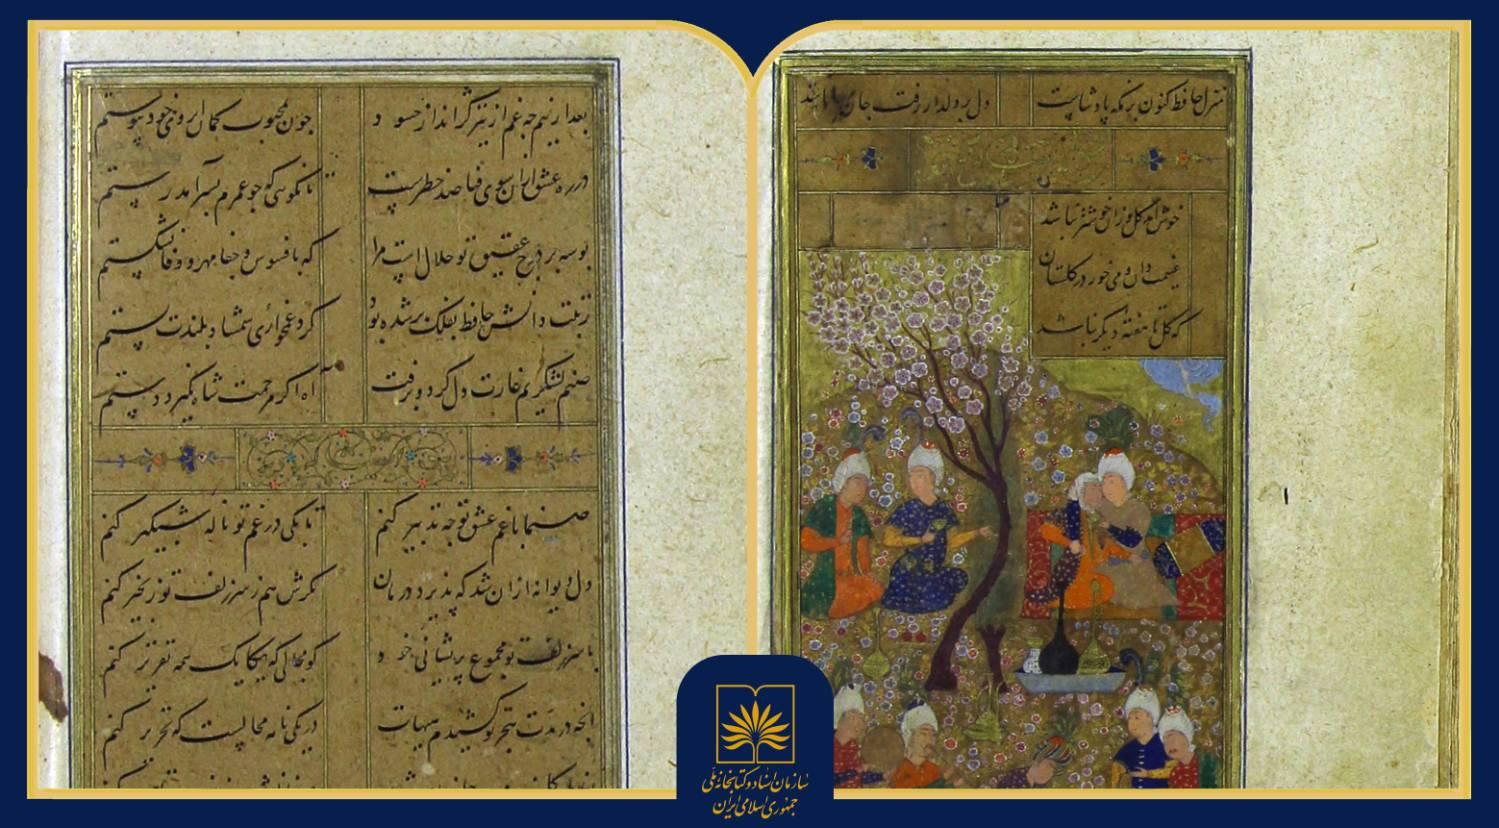 منزل حافظ کنون بزمگه پادشاست
دل بر دلدار رفت جان بر جانانه شد
خوش آمد گل وزان خوشتر نباشد
غنیمت دان و می خور در گلستان
که گل تا هفته دیگر نباشد
بعد ازینم چه غم از تیر کژ انداز حسود
چون بمحبوب کمان ابروی خود پیوستم
در ره عشق از آن سوی فنا صد خطرست
تا نگویی که چو عمرم بسر آمد رستم
بوسه بر درج عقیق تو حلال است مرا
که بافسوس و جفا مهر وفا نشکستم
رتبت دانش حافظ بفلک برشده بود
کرد غمخواری شمشاد بلندت پستم
صنم لشکریم غارت دل کرد و رفت
آه اگر رحمت شاه نگیرد دستم
صنما با غم عشق تو چه تدبیر کنم
تا بکی در غم تو ناله شبگیر کنم
دل دیوانه از آن شد که پذیرد درمان
مگرش هم ز سر زلف تو زنجیر کنم
با سر زلف تو مجموع پریشانی خود
کو مجالی که یکایک همه تقریر کنم
آنچه در مدت هجر تو کشیدم هیهات
در یکی نامه محالست که تحریر کنم
سازمان اسناد و کتابخانه ملی
جمهوری اسلامی ایران